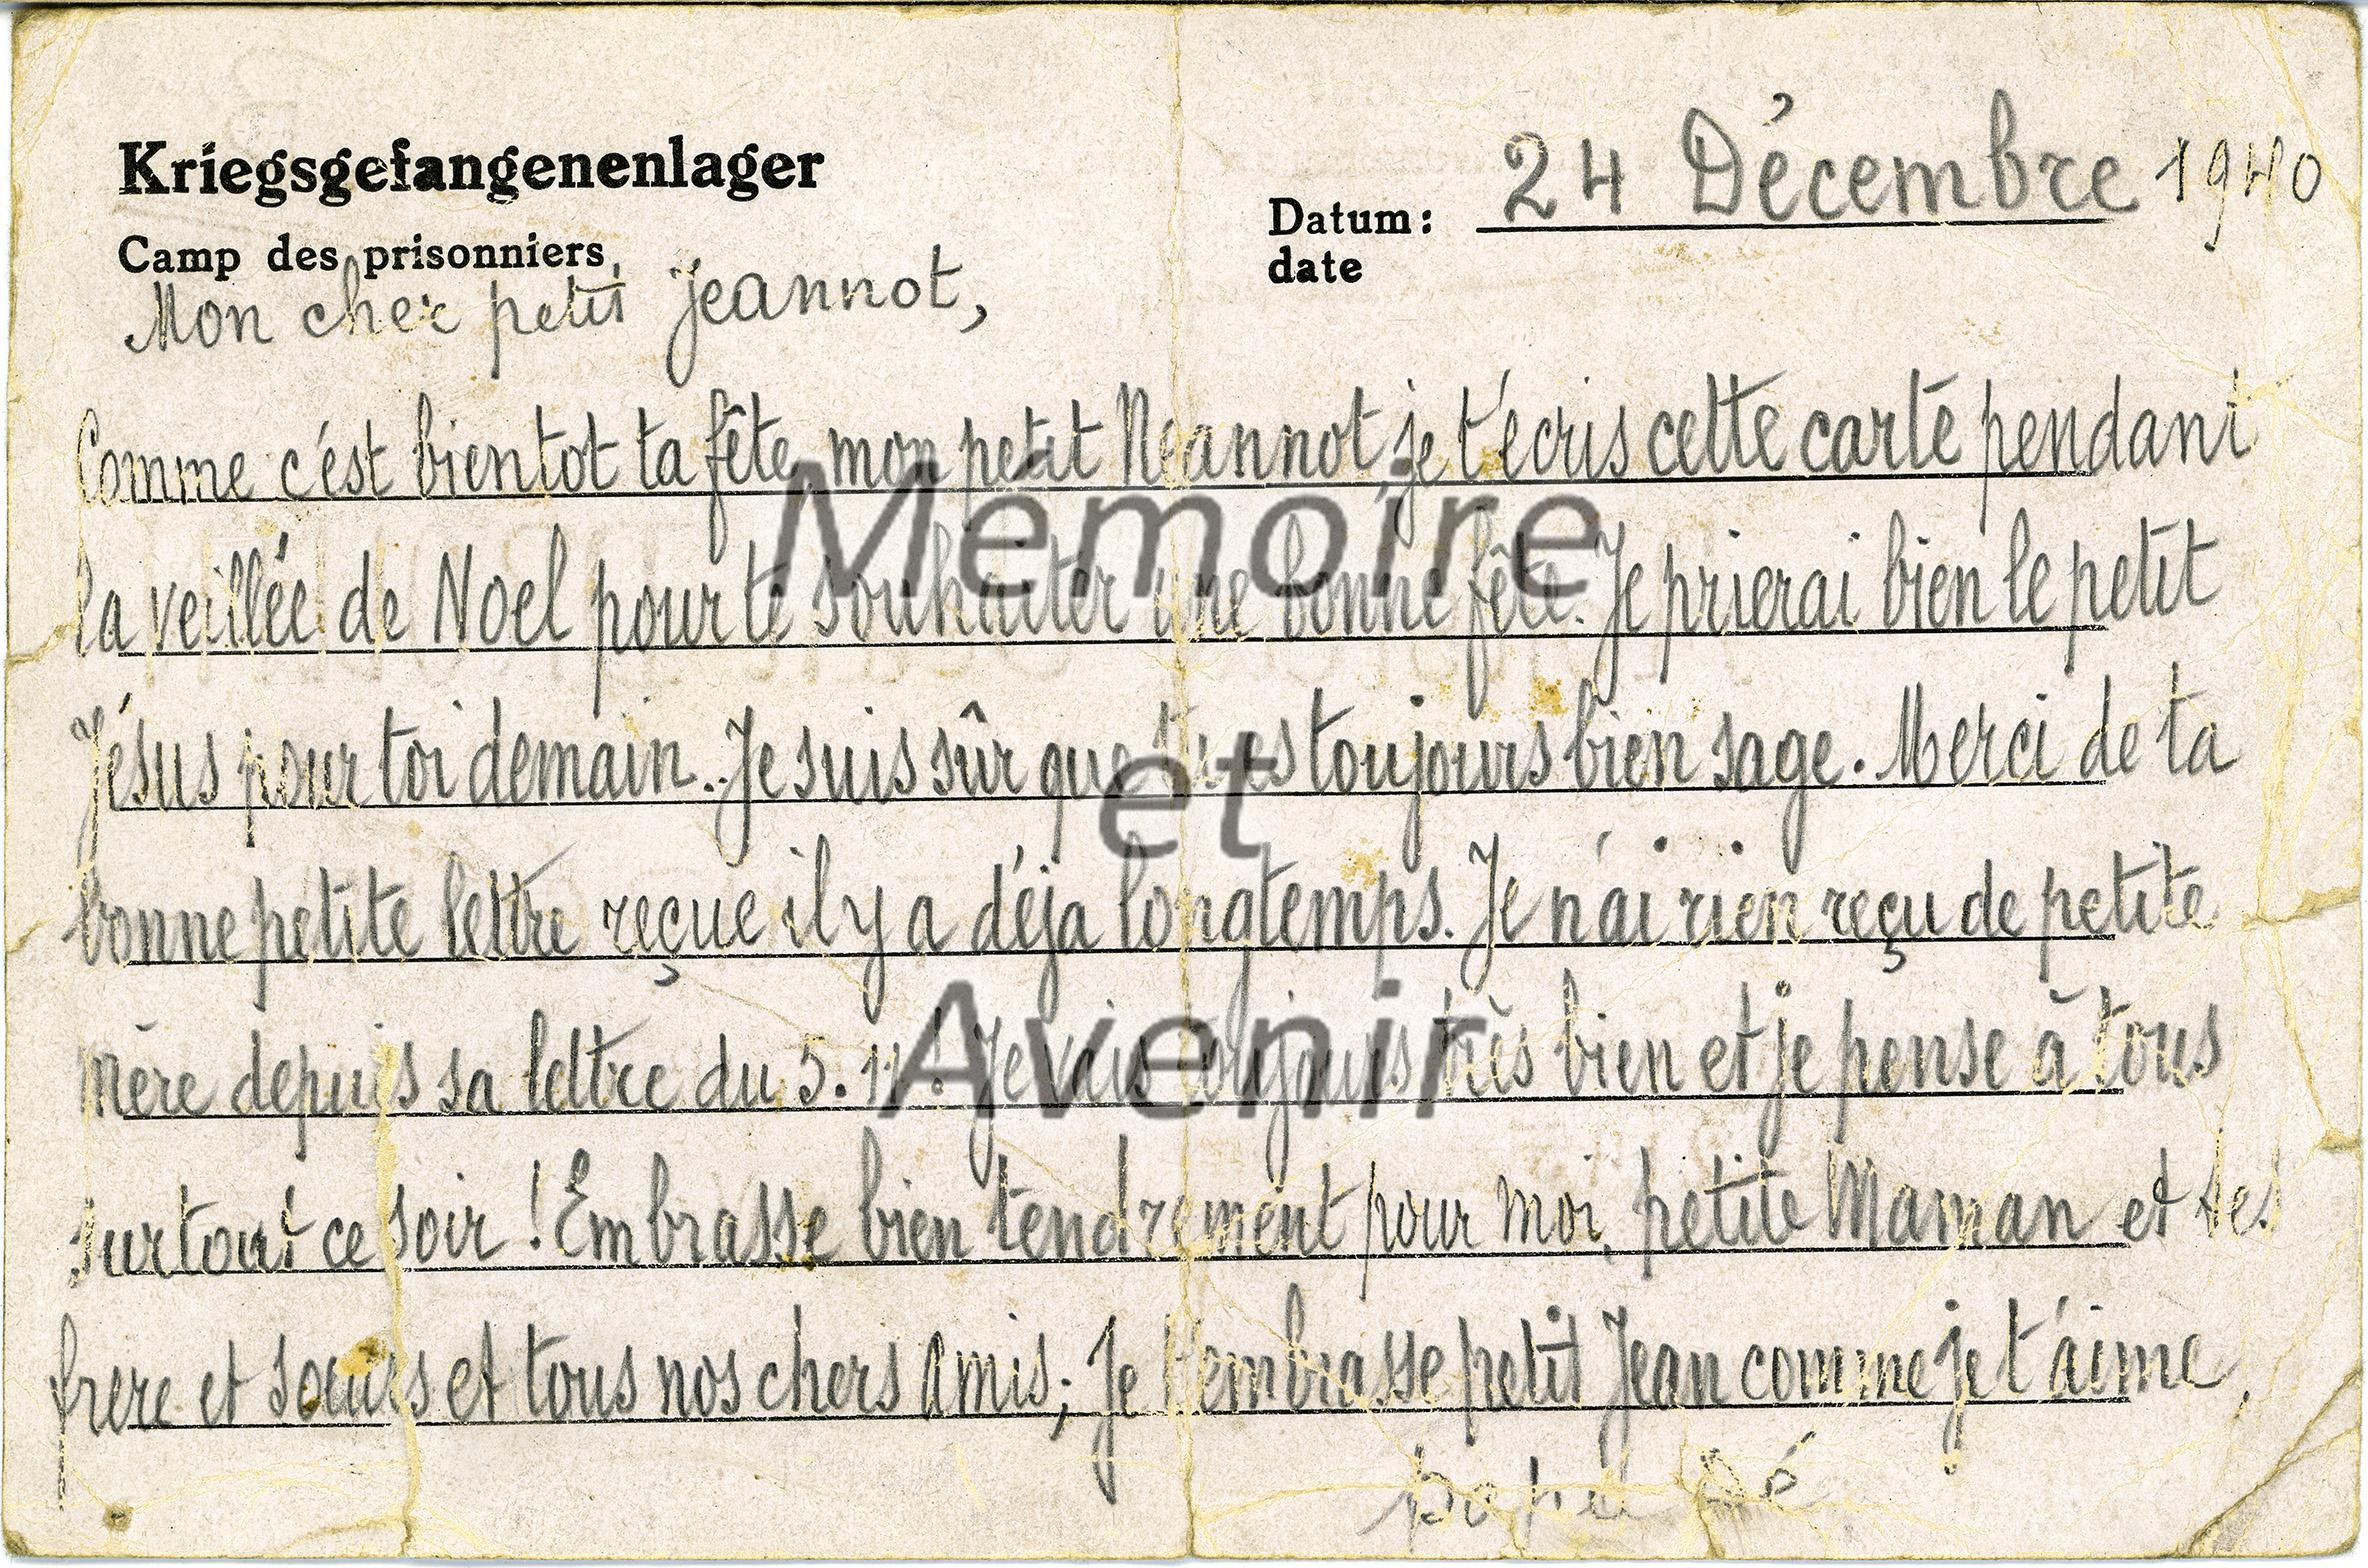 Kriegsgefangenenlager
Camp des prisonniers
Datum: 24 Décembre 1940
date
Mon cher petit Jeannot,
Comme c'est bientot ta fête, mon petit Neannot, je t'écris cette carte pendant
la veillée de Noel pour te souhaiter une bonne fête. Je prierai bien le petit
Jésus pour toi demain. Je suis sûr que tu es toujours bien sage. Merci de ta
bonne petite lettre reçue il y a déja longtemps. Je n'ai rien reçu de petite
mère depuis sa lettre du 5.11! Je vais toujours très bien et je pense à tous
surtout ce soir! Embrasse bien tendrement pour moi, petite Maman et tes
frere et sœurs et tous nos chers amis; Je t'embrasse petit Jean comme je t'aime,
papa Dé
Mémoire
et
Avenir